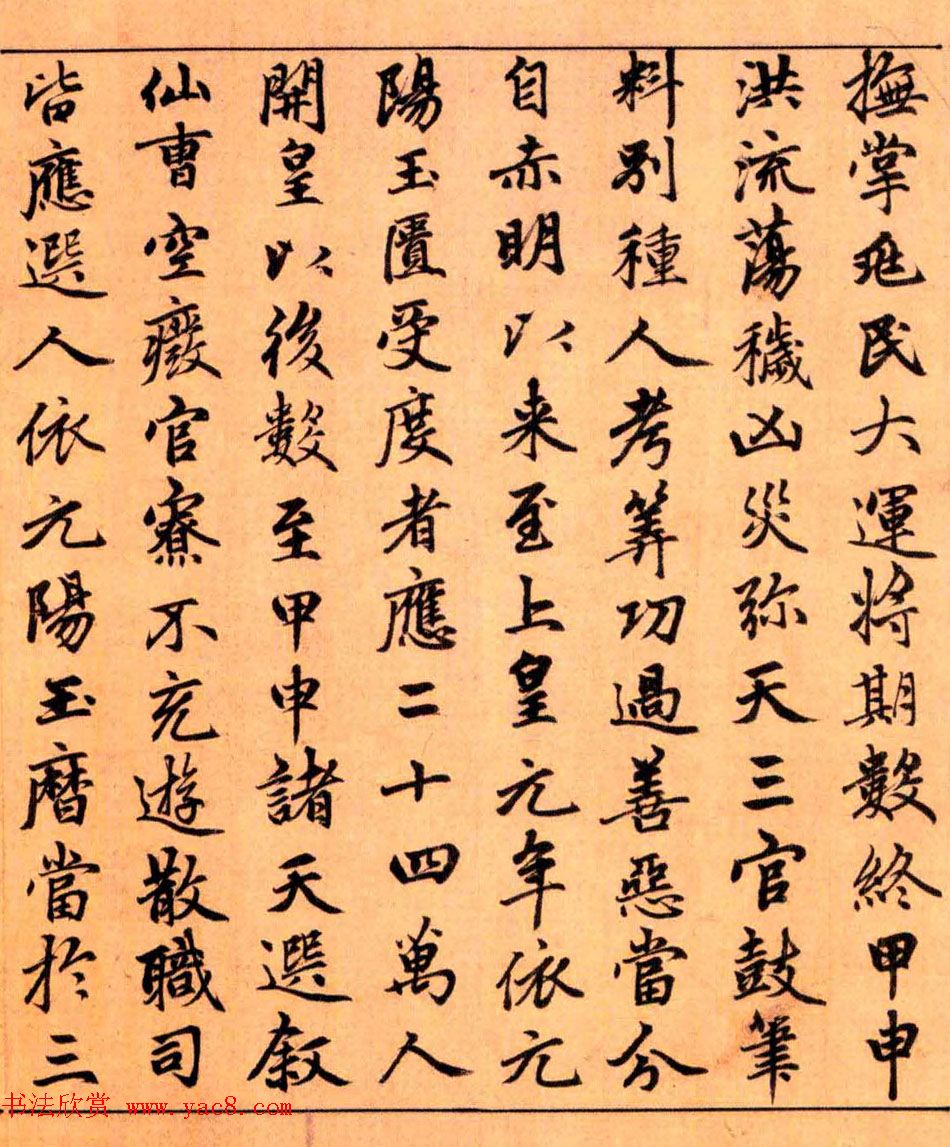 撫掌兆民大運將期數終甲申
洪流蕩穢凶災弥天三官鼓筆
料別種人考筭功過善惡當分
自赤明以来至上皇元年依元
陽玉匱受度者應二十四萬人
開皇以後數至甲申諸天選叙
仙曹空廢官寮不充遊散職司
皆應選人依元陽玉曆當於三
书法欣赏 www.yac8.com